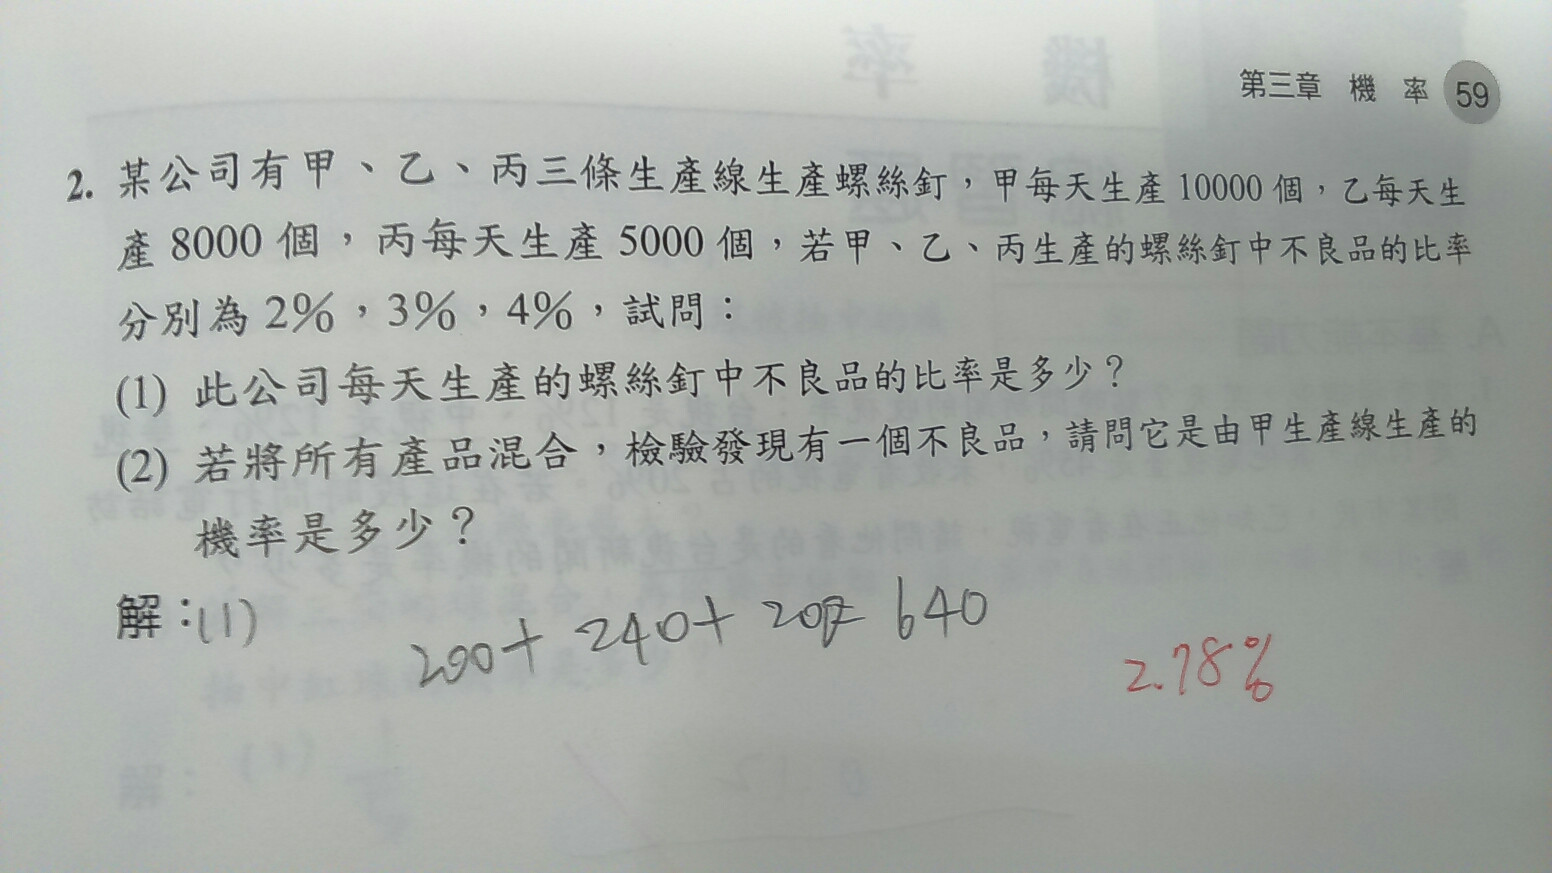 第三章 機 率 59
2. 某公司有甲、乙、丙三條生產線生產螺絲釘，甲每天生產 10000 個，乙每天生
產 8000 個，丙每天生產 5000 個，若甲、乙、丙生產的螺絲釘中不良品的比率
分別為 2%，3%，4%，試問：
(1) 此公司每天生產的螺絲釘中不良品的比率是多少？
(2) 若將所有產品混合，檢驗發現有一個不良品，請問它是由甲生產線生產的
機率是多少？
解：(1)
200+ 240+ 200= 640
2.78%